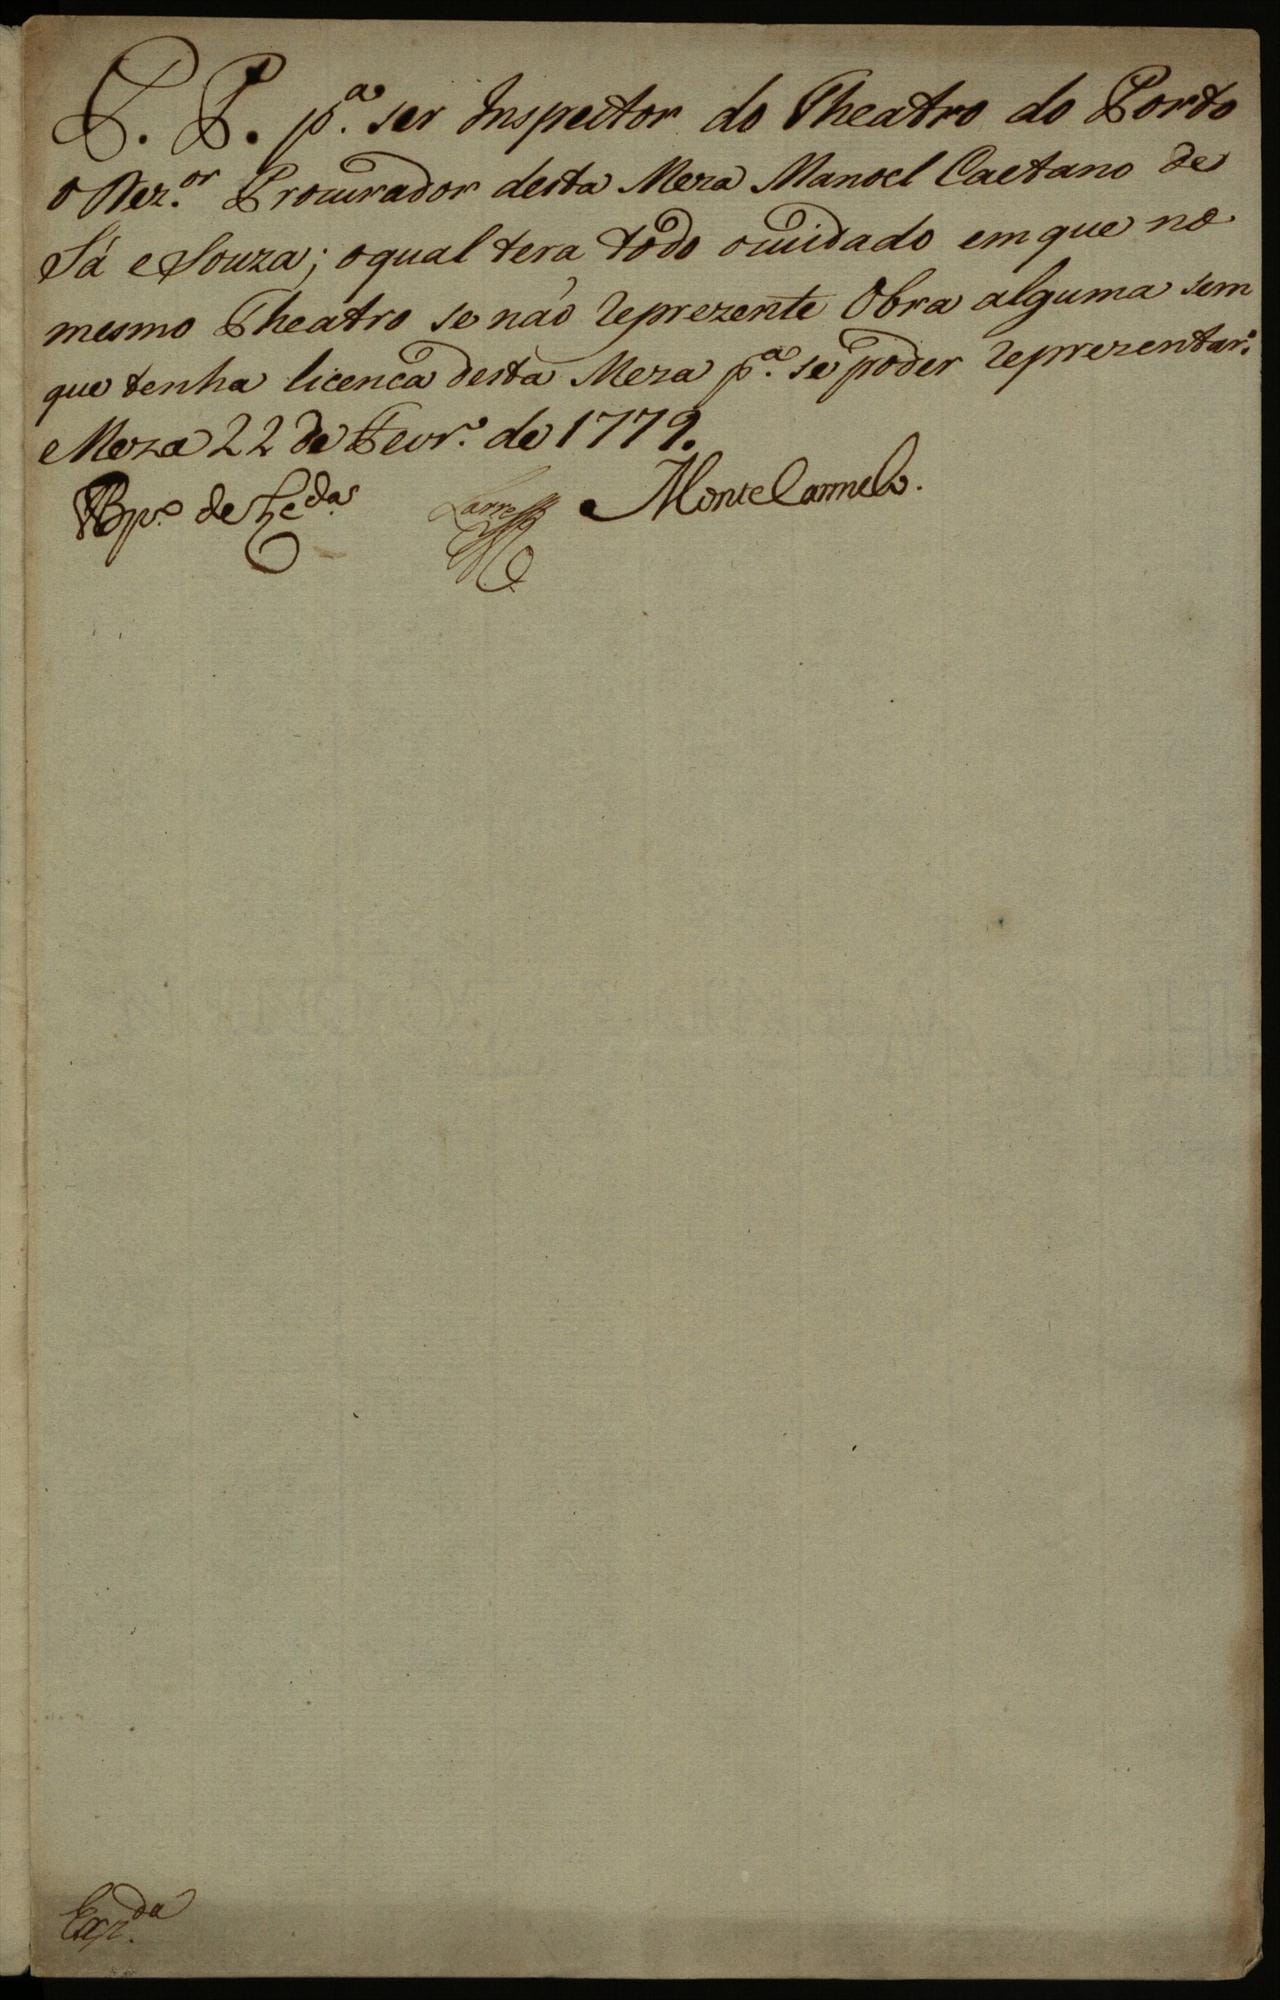 P. P. p.ª ser Inspector do Theatro do Porto
o Dez.or Procurador desta Meza Manoel Caetano de
Sá e Souza; o qual tera todo o cuidado em que no
mesmo Theatro se não reprezente Obra alguma sem
que tenha licenca desta Meza p.ª se poder reprezentar.
Meza 22 de Fevr.º de 1779.
Bpo. de
MonteCarmelo.
Exp.da